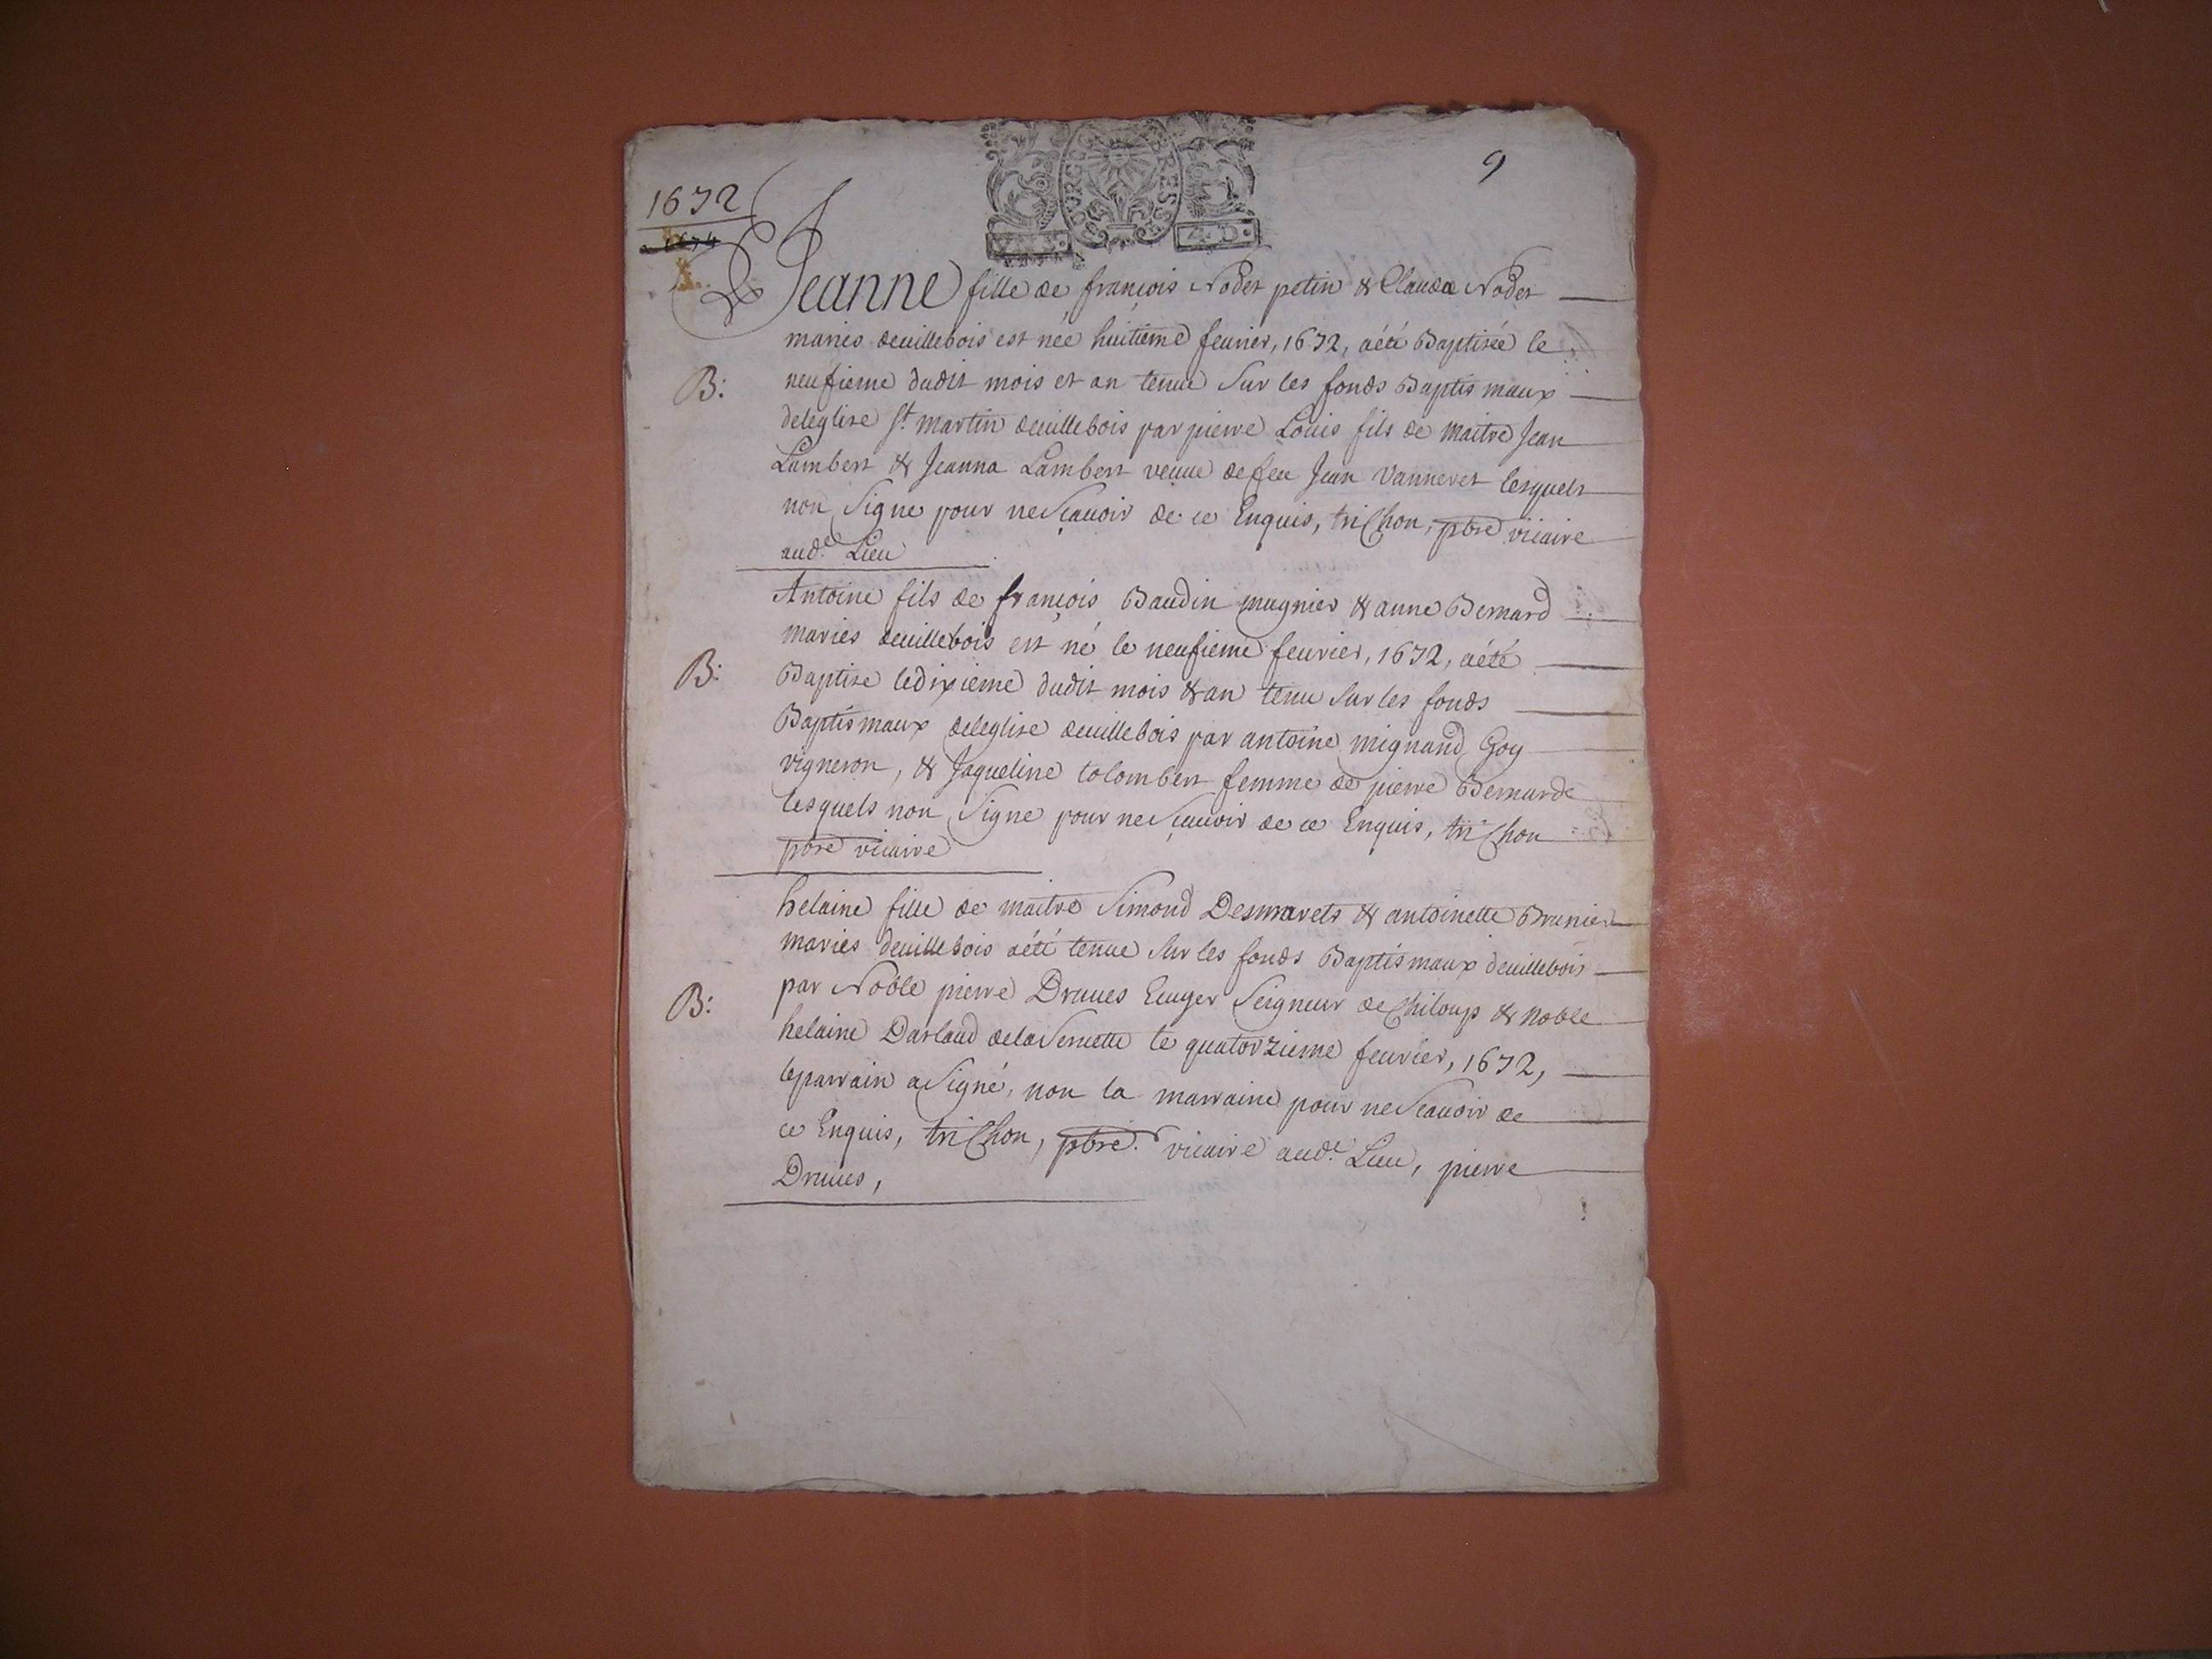 9
1672
BOURG BRESSE
Jeanne fille de françois Nodet petin & Claudæ Nodet
maries deuillebois est née huitieme feurier, 1672, aété Baptisée le
B: neufieme dudit mois et an tenue Sur les fonds Baptismaux
deleglise St. martin deuillebois par pierre Louis fils de maitre Jean
Lambert & Jeanna Lambert veuue de feu Jean Vanneret lesquels
non Signe pour ne Sçauoir de ce Enquis, trichon, pbre vicaire
aud.e Lieu
Antoine fils de françois Baudin mugnier & anne Bernard
maries deuillebois est né le neufieme feurier, 1672, aété
B: Baptise ledixieme dudit mois & an tenu Sur les fonds
Baptismaux deleglise deuillebois par antoine mignand Goy
vigneron, & Jaqueline tolombert femme de pierre Bernarde
lesquels non Signe pour ne Sçauoir de ce Enquis, trichon
pbre vicaire
helaine fille de maitre Simond Desmarets & antoinette Brunier
maries deuillebois aété tenue Sur les fonds Baptismaux deuillebois
B: par Noble pierre Druues Ecuyer Seigneur de Chiloup & Noble
helaine Darlaud dela Vernette le quatorzieme feurier, 1672,
leparrain a Signé, non la marraine pour ne Scauoir de
ce Enquis, trichon, pbre. vicaire aud.e Lieu, pierre
Druues,